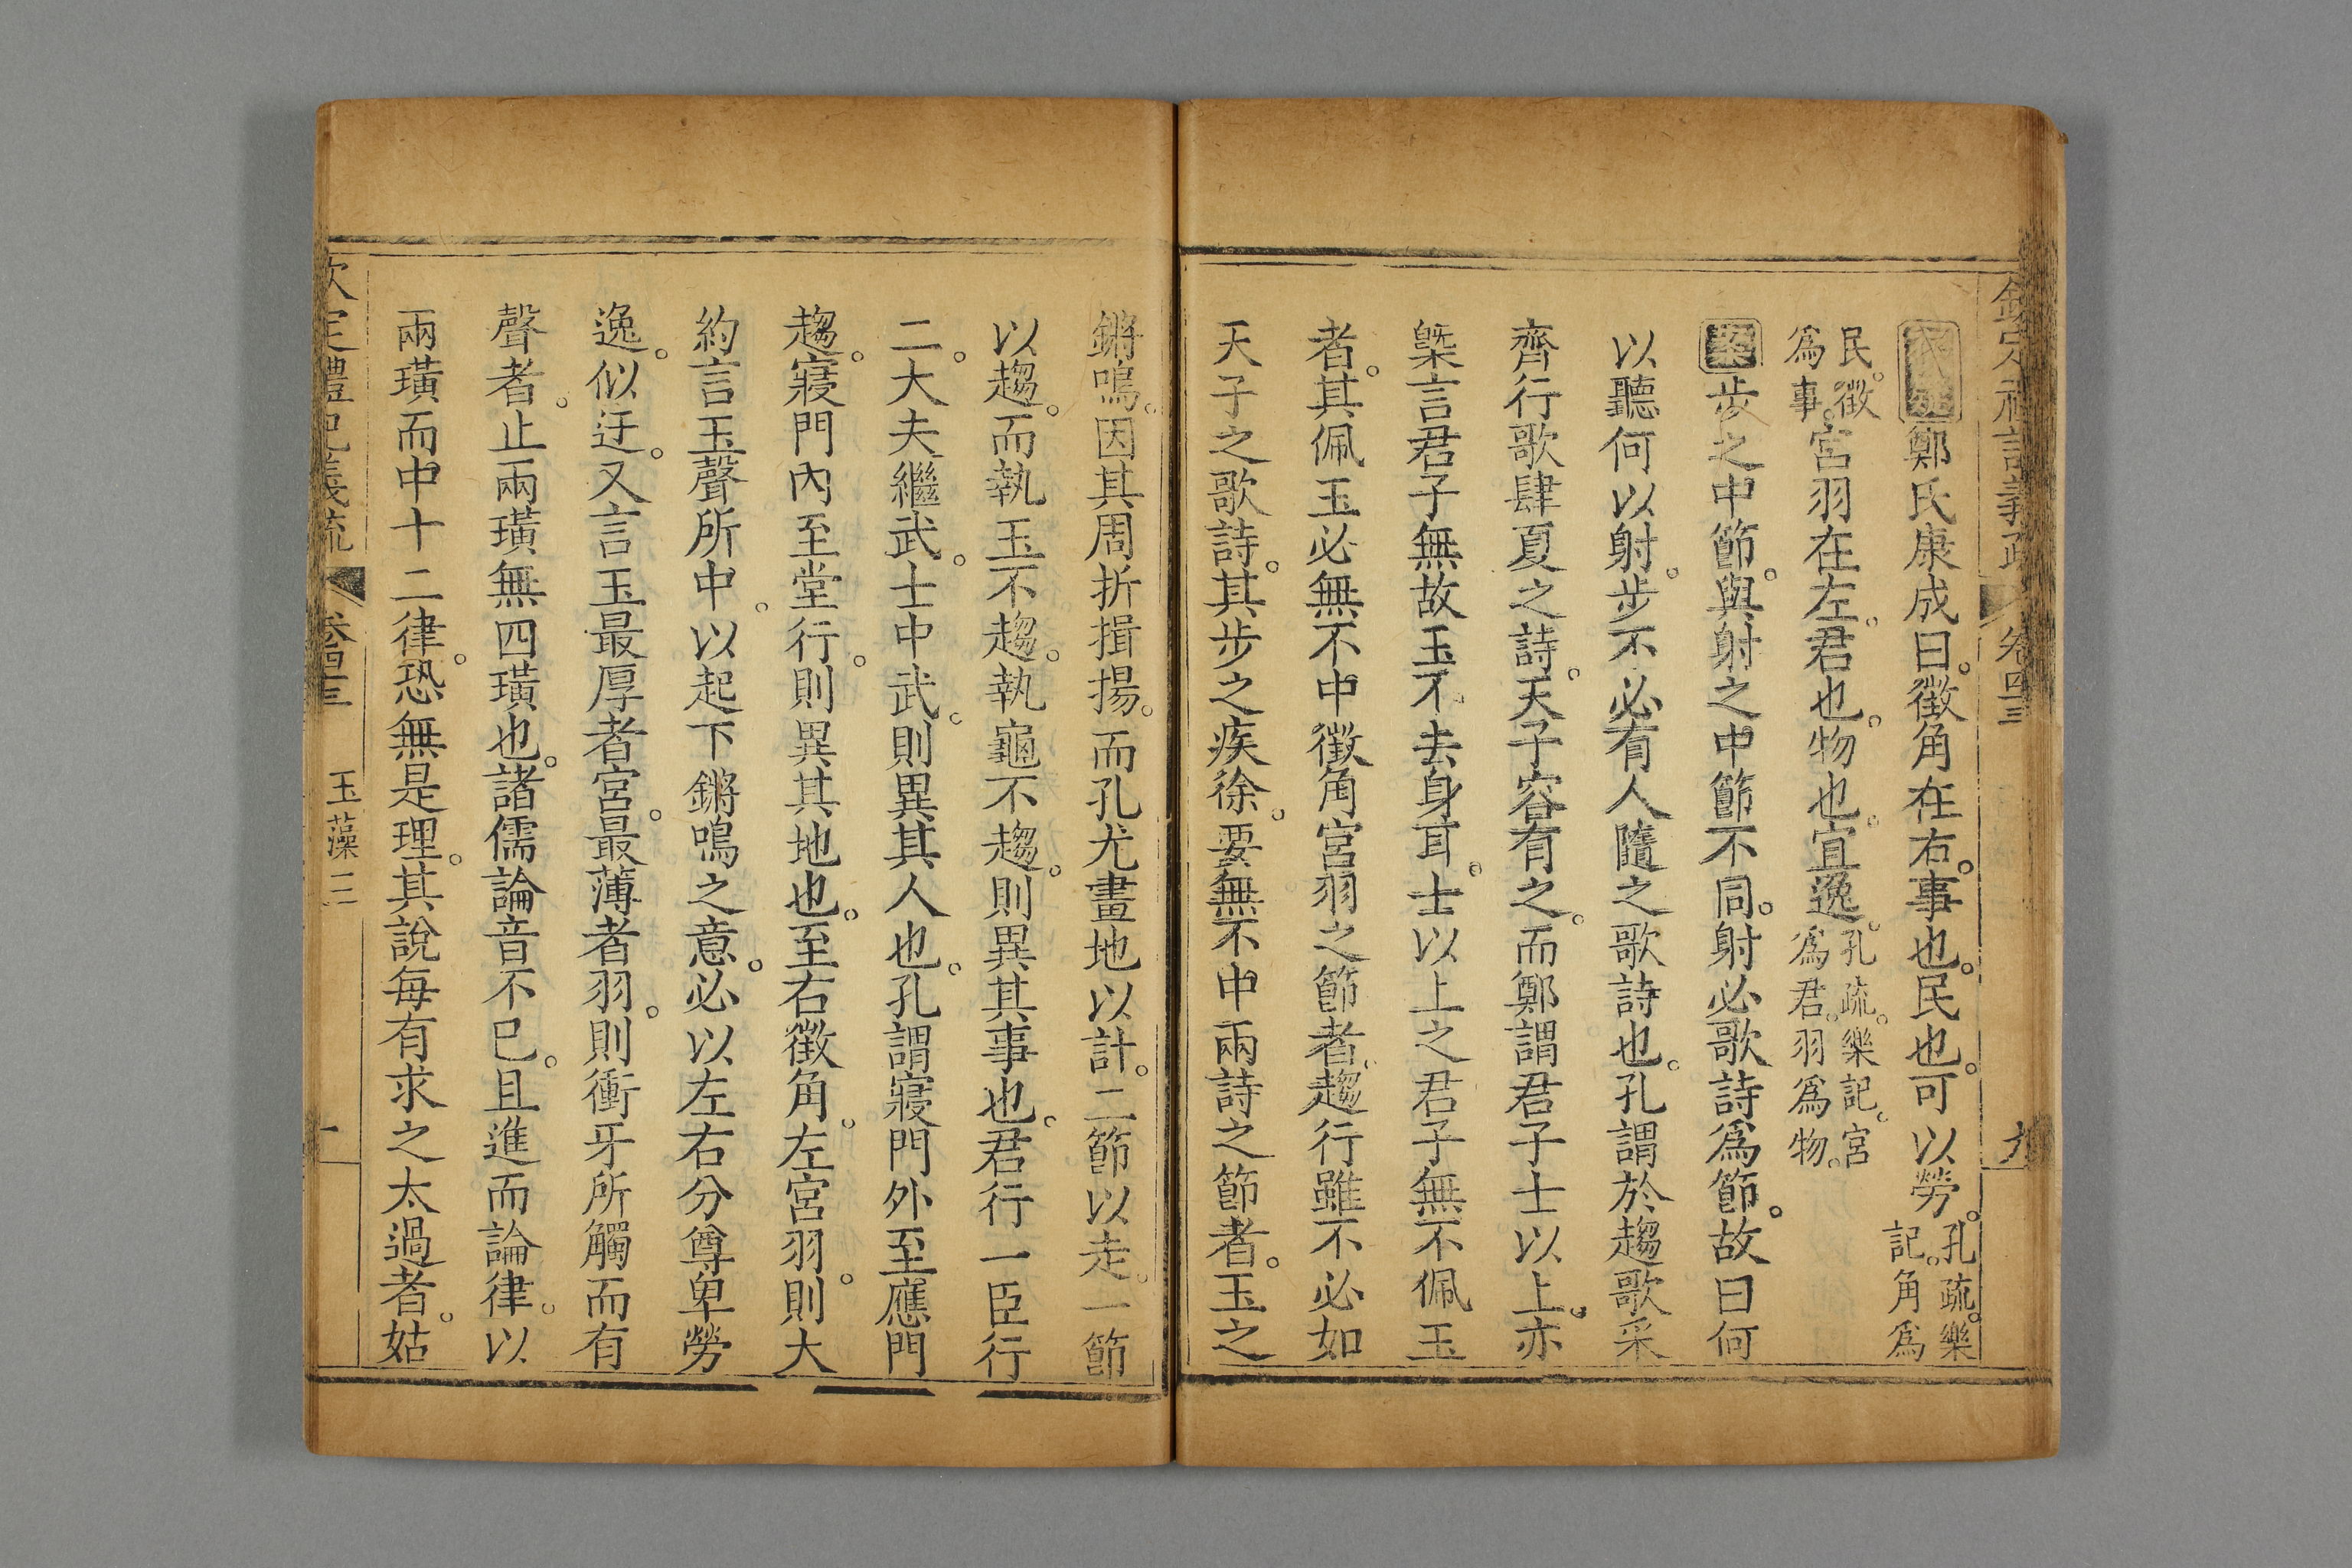 欽定禮記義疏 卷四三 九
鄭氏康成曰。徵角在右。事也。民也。可以勞。孔疏。樂記。角爲
民。徵爲事。宮羽在左。君也。物也。宜逸。孔疏。樂記。宮爲君。羽爲物。
案步之中節。與射之中節不同。射必歌詩爲節。故曰何
以聽何以射。步不必有人隨之歌詩也。孔謂於趨歌采
齊行歌肆夏之詩。天子容有之。而鄭謂君子士以上。亦
槩言君子無故玉不去身耳。士以上之君子無不佩玉
者。其佩玉必無不中徵角宮羽之節者。趨行雖不必如
天子之歌詩。其步之疾徐。要無不中兩詩之節者。玉之
鏘鳴。因其周折揖揚。而孔尤畫地以計。二節以走。一節
以趨。而執玉不趨。執龜不趨。則異其事也。君行一臣行
二。大夫繼武。士中武。則異其人也。孔謂寢門外至應門
趨。寢門內至堂行。則異其地也。至右徵角。左宮羽。則大
約言玉聲所中。以起下鏘鳴之意。必以左右分尊卑勞
逸。似迂。又言玉最厚者宮。最薄者羽。則衝牙所觸而有
聲者。止兩璜無四璜也。諸儒論音不已。且進而論律。以
兩璜而中十二律。恐無是理。其說每有求之太過者。姑
欽定禮記義疏 卷四三 玉藻 一